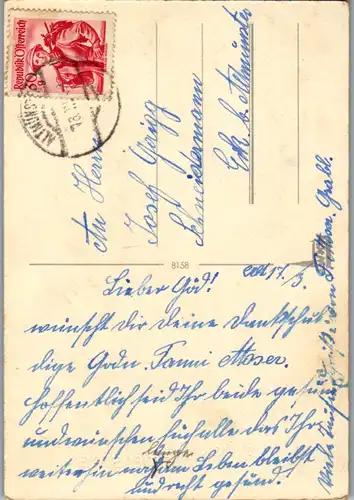 Republik Österreich
ALTMÜNSTER
An Herrn
Josef
Schneidermann
Eck b. Altmünster
8138
Lieber Göd!
am 17./3.
wünscht dir deine Dankschul-
dige Godn. Fanni Moser.
Hoffentlich seid Ihr beide gesund
und wünschen auch alle das Ihr
lange
weiterhin noch am Leben bleibst
und recht gesund.
Viele Grüße von